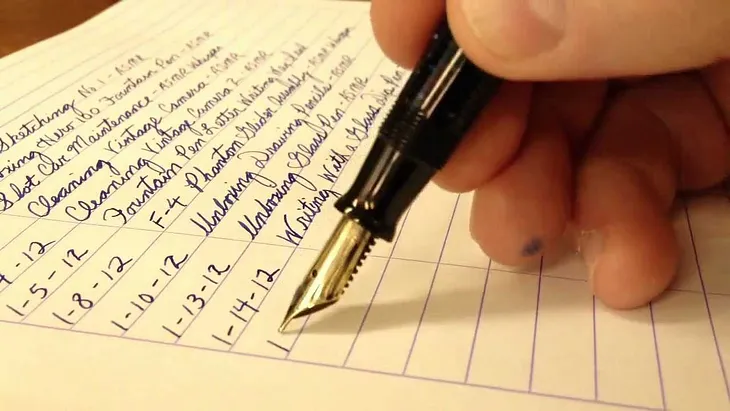 Sketching No. 1 - ASMR
Hero 100 Fountain Pen - ASMR
Slot Car Maintenance - ASMR Whisper
Cleaning Vintage Camera - ASMR
4-12 Cleaning Vintage Camera 2 - ASMR
1-5-12 Fountain Pen Letter Writing
1-8-12 F-4 Phantom Glider Assembly - ASMR Whisper
1-10-12 Unboxing Drawing Pencils - ASMR
1-13-12 Unboxing Glass Pen - ASMR
1-14-12 Writing With a Glass Dip Pen
1